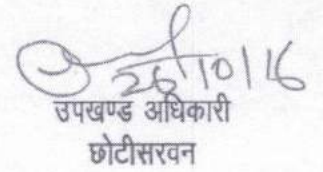 26/10/16
उपखण्ड अधिकारी
छोटीसरवन